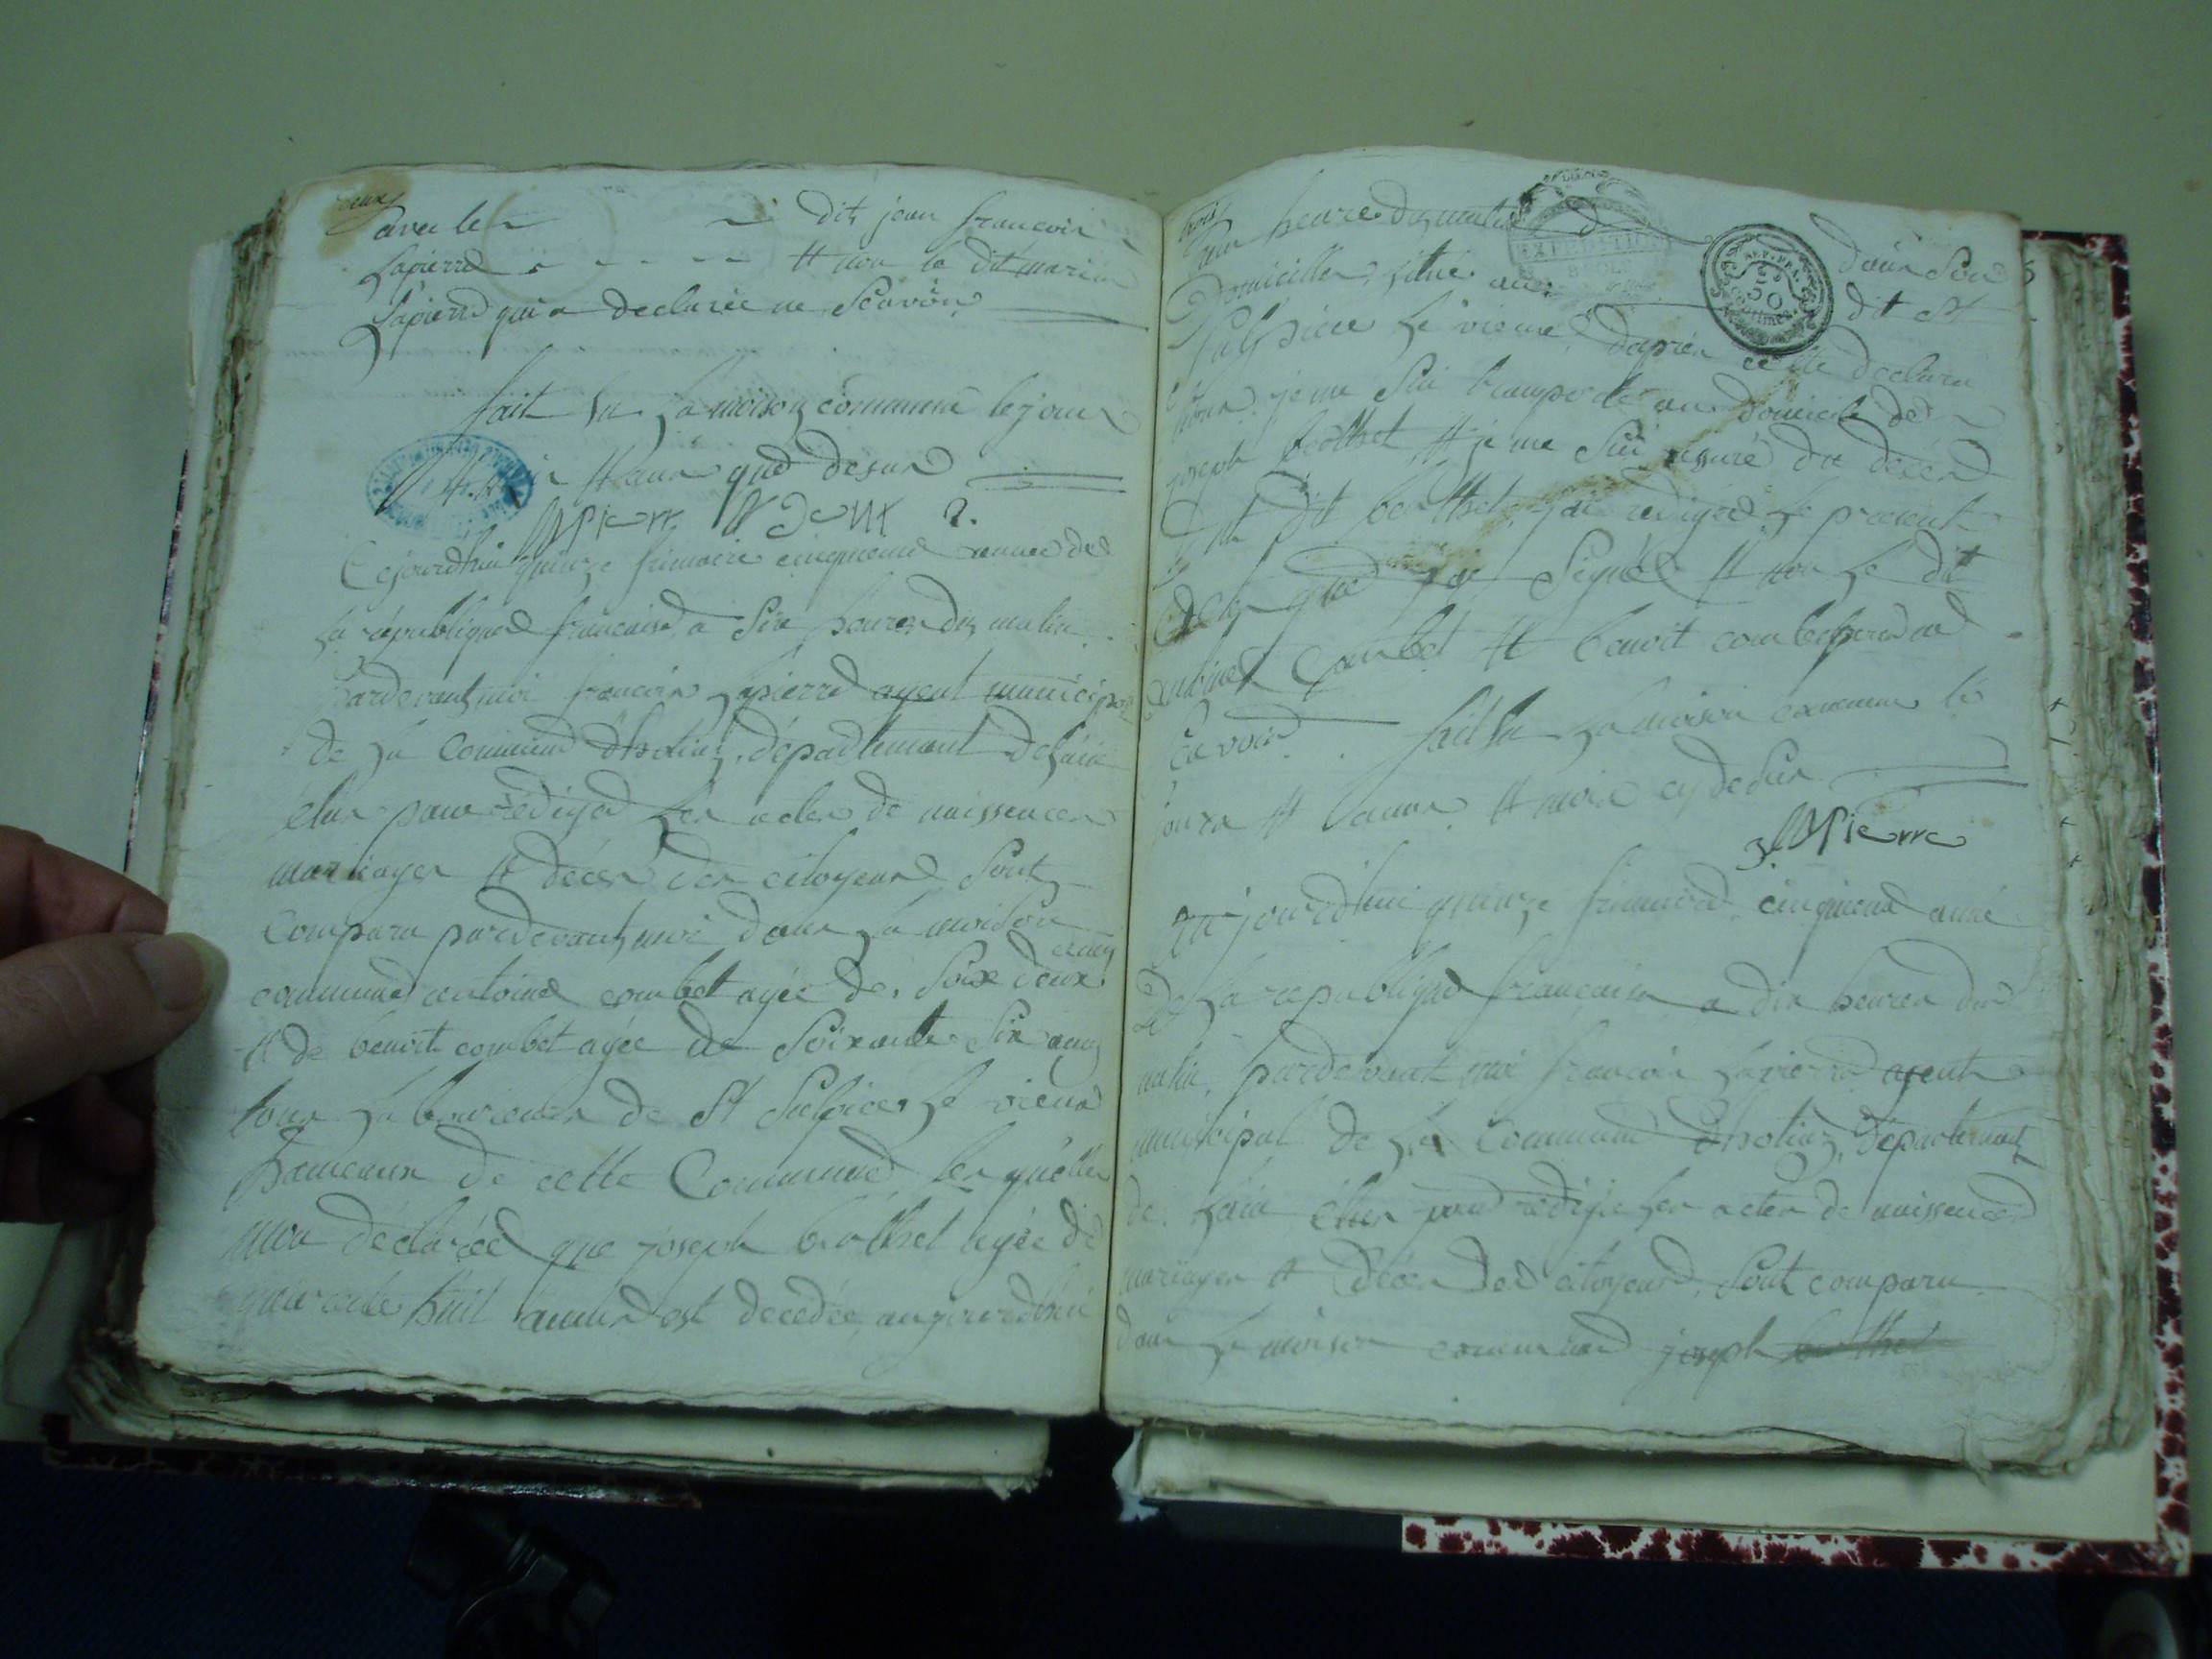 deux
avec le dit jean françois
lapierre et non le dit marin
lapierre qui a declarée ne scavoir
fait en la maison commune le jour
et an que desus
lapierre 2.
Cejourdhui quinze frimaire cinquieme année de
la république francaise a six heures du matin
pardevant moi francois lapierre agent municipal
de la commune d'hotiaz, département de lain
élu pour rédiger les actes de naissences
mariages et décès des citoyens sont
comparu pardevant moi dans la maison
commune antoine combet agée de soixe deux ans
et de benoit combet agée de soixante six ans
tous laboureurs de St Sulpices le vieux
hameaux de cette Commune lesquelles
mon déclarée que joseph berthet agée de
quarente huit annés est decedée aujourdhui
trois
une heure du matin dans son
domicilles situé au dit St
Sulpice le vieux, daprès cette declara
tion je me sui transporté au domicile de
joseph berthet et je me sui assuré du décès
du dit berthet, jai rédigée le present
acte que jai signé et non le dit
antoine Combet et benoit combet pour ne
scavoir fait en la maison commune le
jours et l'anné et mois cy desus
3. lapierre
Aujourdhui quinze frimaire cinquieme année
de la république françaises a dix heures du
matin, pardevant moi francois lapierre agent
municipal de la Commune d'hotiaz, département
de lain élu pour rédiger les actes de naissences
mariages et décès des citoyens, sont comparu
dans la maison commune joseph berthet
EXPEDITION
REP. FRA.
50
centimes